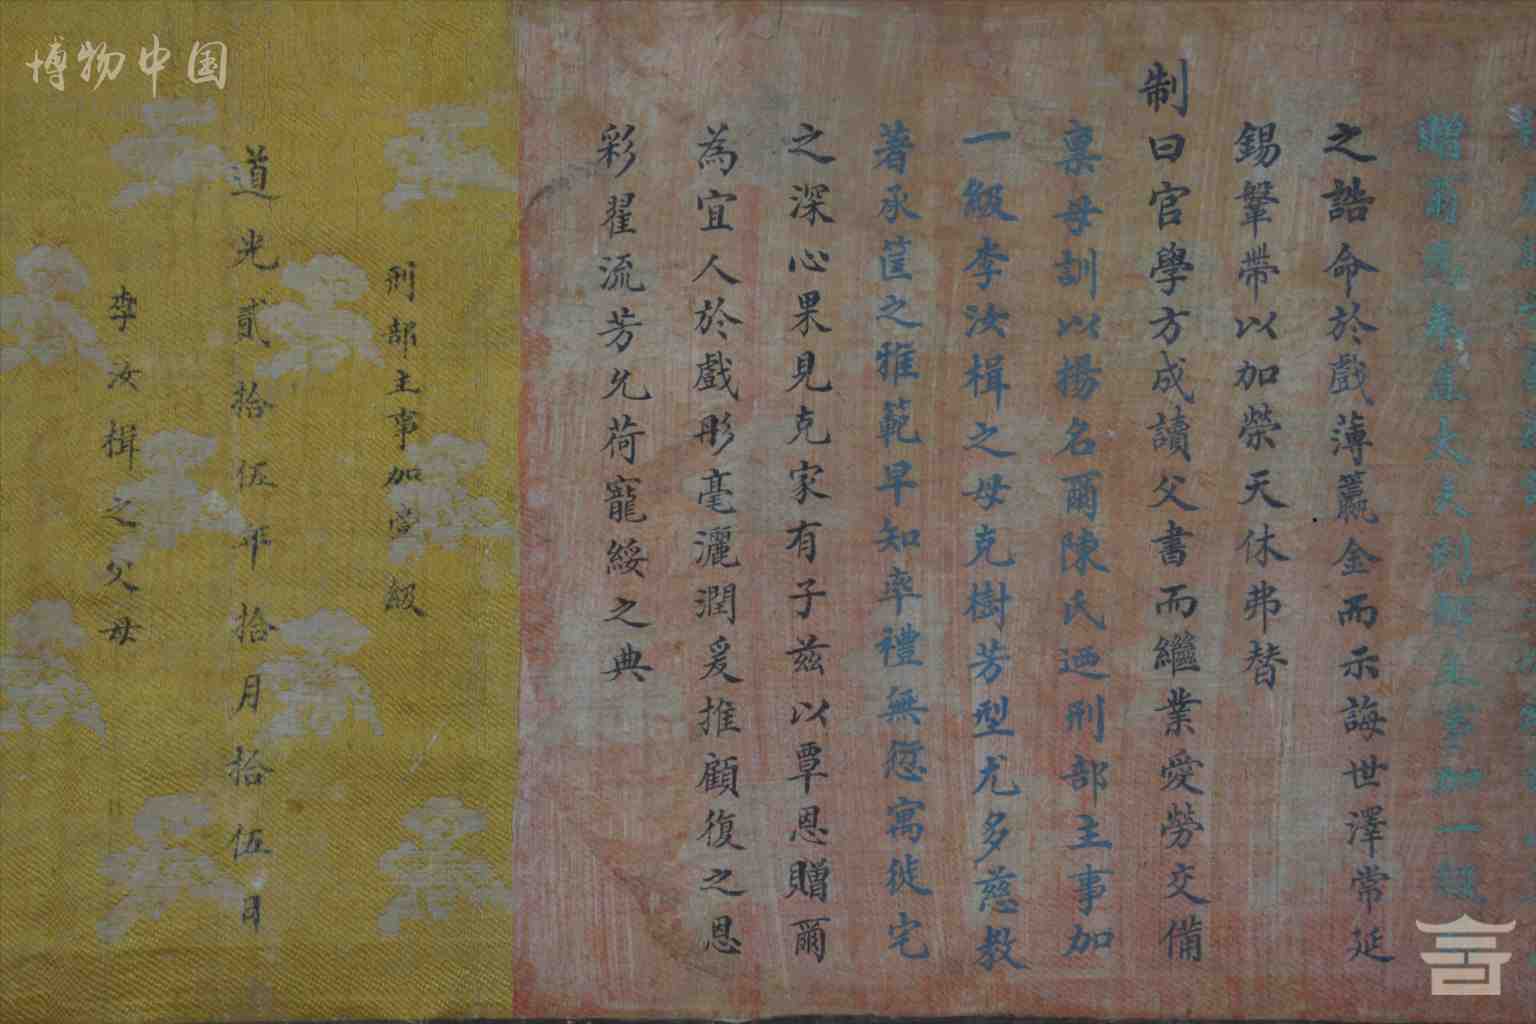 贈爾為奉直大夫刑部主事加一級
之誥命於戲薄籯金而示誨世澤常延
錫鞶帶以加榮天休弗替
制曰官學方成讀父書而繼業愛勞交備
稟母訓以揚名爾陳氏迺刑部主事加
一級李汝楫之母克樹芳型尤多慈教
著承筐之雅範早知率禮無愆寓徙宅
之深心果見克家有子茲以覃恩贈爾
為宜人於戲彤毫灑潤爰推顧復之恩
彩翟流芳允荷寵綏之典
刑部主事加壹級
道光貳拾伍年拾月拾伍日
李汝楫之父母
博物中国